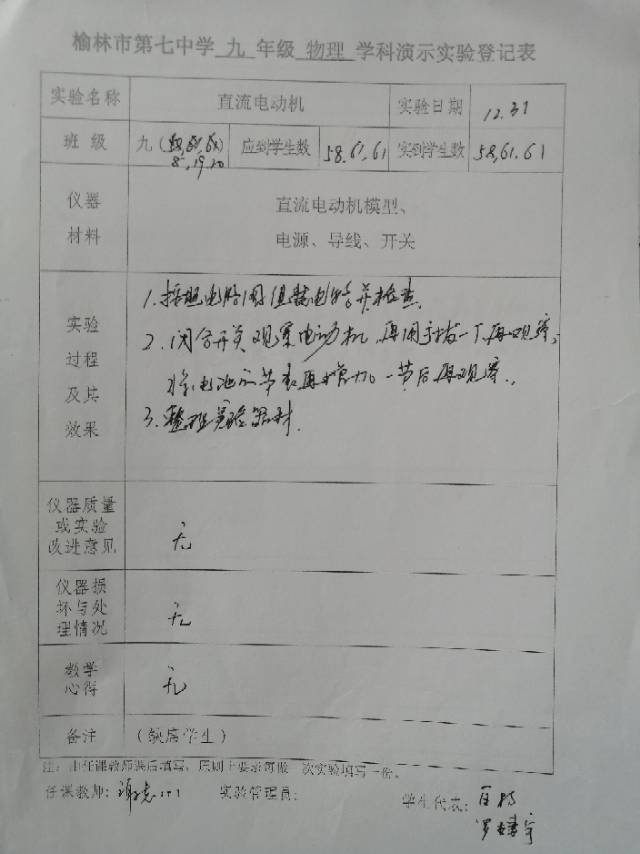 榆林市第七中学 九 年级 物理 学科演示实验登记表
实验名称 直流电动机 实验日期 12.31
班 级 九( 8, 19, 20 ) 应到学生数 58.61.61 实到学生数 58,61.61
仪器 材料 直流电动机模型、
电源、导线、开关
实验 过程 及其 效果
1.按照电路图组装电路并检查.
2.闭合开关观察电动机,再用手拨一下,再观察;
将电池的节数再增加一节后再观察.
3.整理实验器材.
仪器质量 或实验 改进意见 无
仪器损 坏与处 理情况 无
教学 心得 无
备注 (缺席学生)
注:由任课教师课后填写,原则上要求每做一次实验填写一份。
任课教师: 实验管理员: 学生代表: